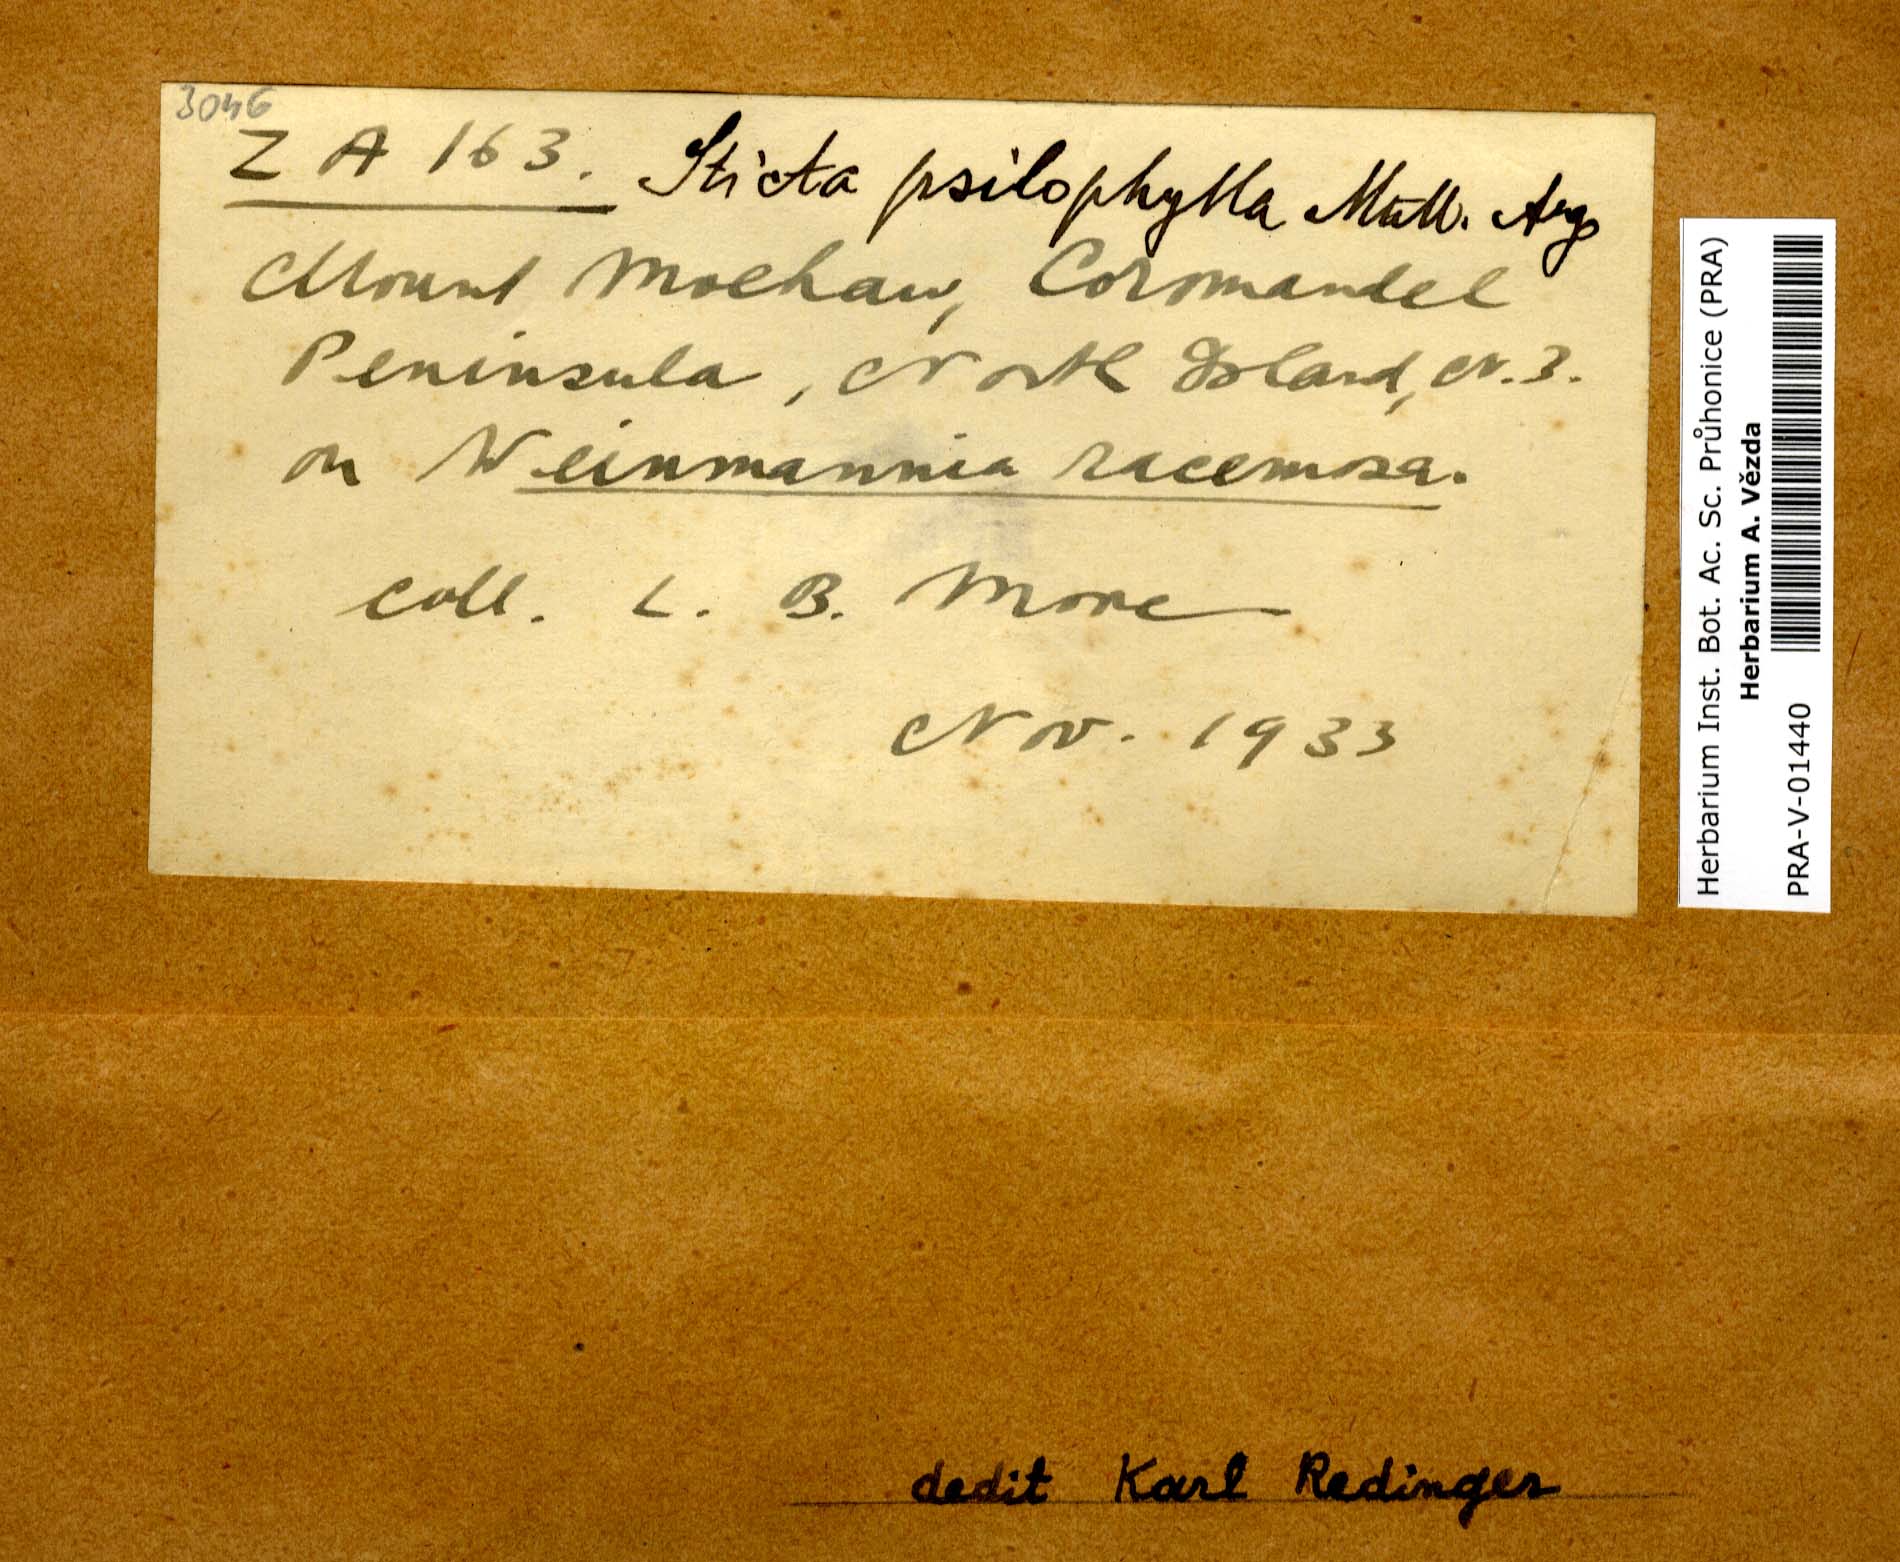 3046
Z A 163. Sticta psilophylla Müll. Arg
Mount Moehau, Coromandel
Peninsula, North Island, N.Z.
on Weinmannia racemosa.
coll. L. B. Moore
Nov. 1933
Herbarium Inst. Bot. Ac. Sc. Průhonice (PRA)
Herbarium A. Vězda
PRA-V-01440
dedit Karl Redinger